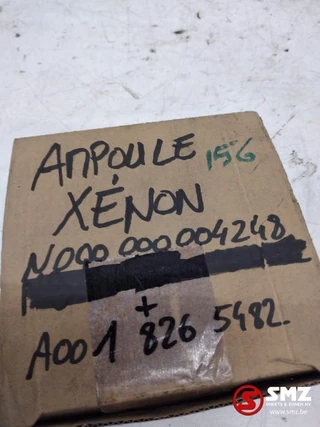 AMPOULE 156
XÉNON
N000 000 004248
+
A001 826 5482
SMZ
www.smz.be